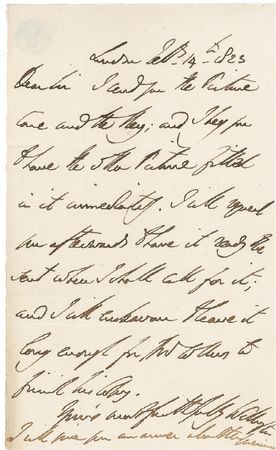 London Feb. 14th 1823
Dear Sir I send you the Picture
Case and the Key; and I beg you
to have the other Picture fitted
in it immediately. I will
you afterwards to have it ready the
when I shall call for it;
and I will endeavour to leave it
long enough for to
finish his Copy.
Your's most faithfully Wellington
I will give you an answer about